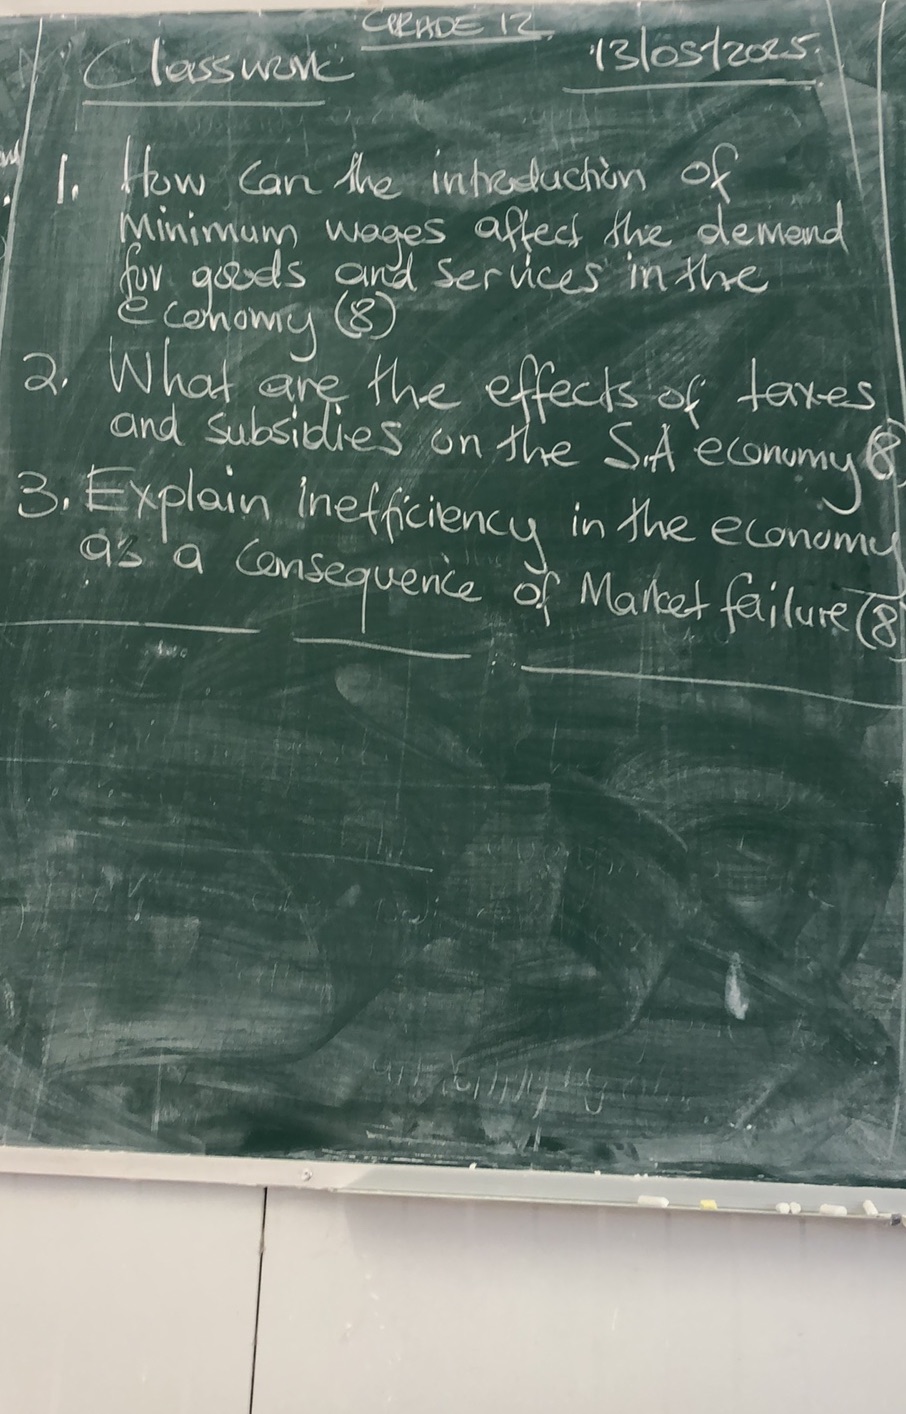 GRADE 12
Classwork 13/05/2025
1. How can the introduction of
minimum wages affect the demand
for goods and services in the
economy (8)
2. What are the effects of taxes
and subsidies on the S.A economy (8)
3. Explain inefficiency in the economy
as a consequence of Market failure (8